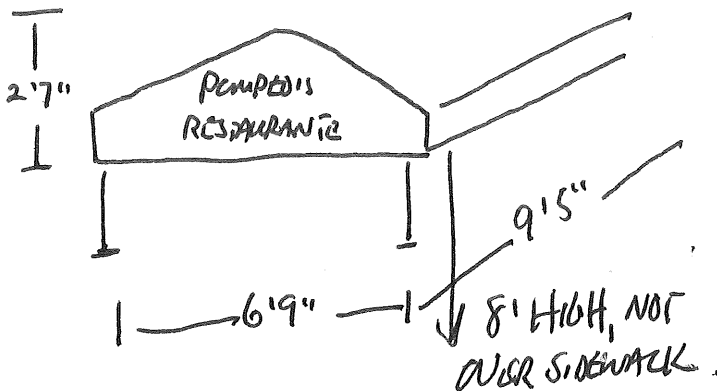 2'7"
POMPEO'S
RESTAURANTE
9'5"
6'9"
8' HIGH, NOT
OVER SIDEWALK.